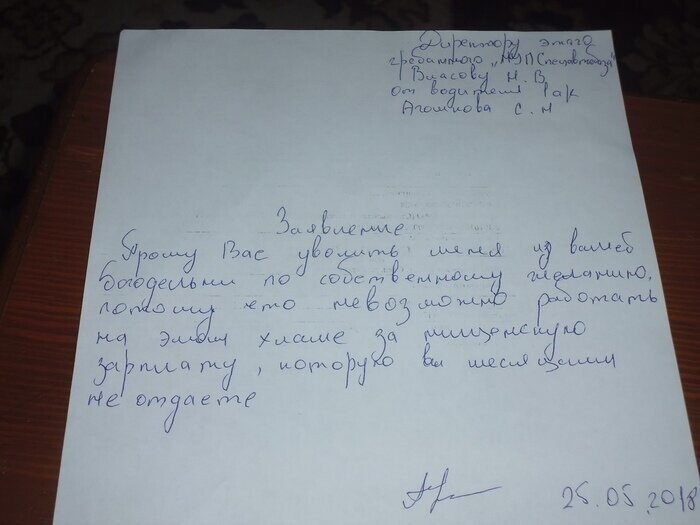 Директору этого
гребанного „МУПСпецавтобаза"
Власову Н. В,
от водителя а/к
Агошкова С. Н
Заявление.
Прошу Вас уволить меня из вашей
богодельни по собственному желанию,
потому что невозможно работать
на этом хламе за нищенскую
зарплату, которую вы месяцами
не отдаете
25.05.2018